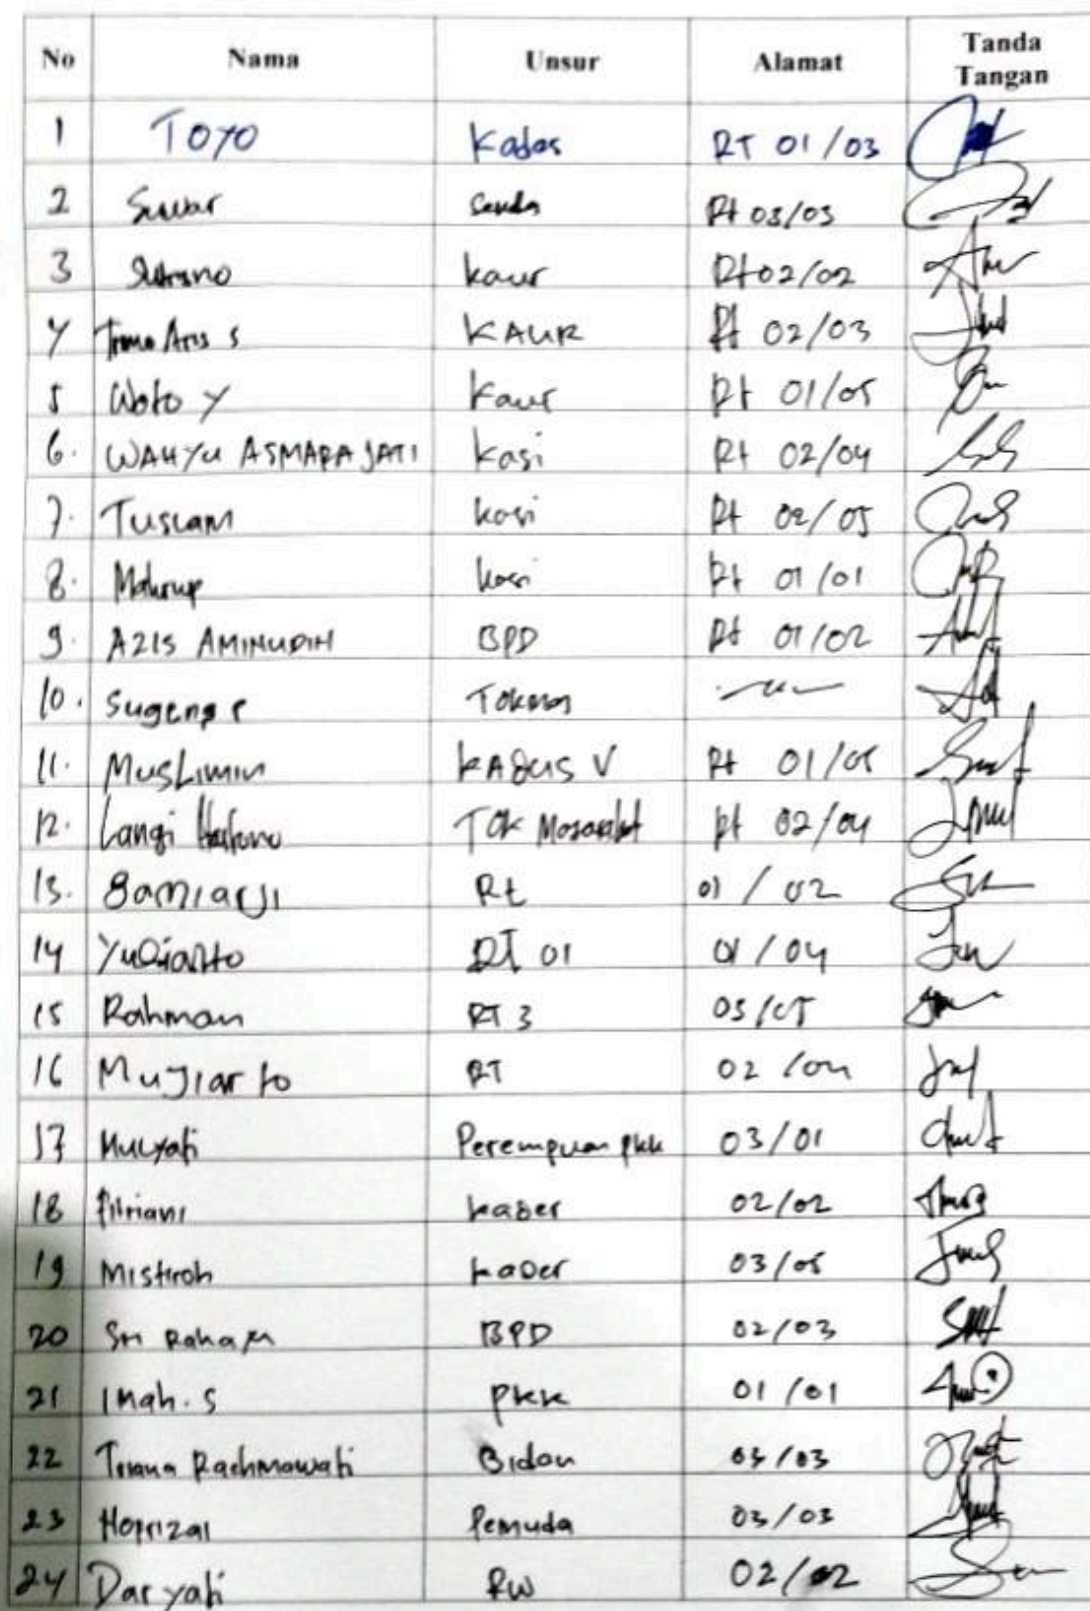 No Nama Unsur Alamat Tanda Tangan
1 TOYO Kades RT 01/03
2 Suwar Sekdes Rt 03/03
3 Sutrisno kaur Rt 02/02
4 Aris S KAUR Rt 02/03
5 Woto Y Kaur Rt 01/05
6. WAHYU ASMARA JATI Kasi Rt 02/04
7. TUSLAM kasi Rt 02/05
8. Mahrup kasi Rt 01/01
9. AZIS AMINUDIN BPD Rt 01/02
10. Sugeng P Tokmas
11. MusLimin KADUS V Rt 01/05
12. Langi TOK Rt 02/04
13. Samiarji Rt 01 / 02
14 Yudianto RT 01 01 / 04
15 Rohman RT 3 03/05
16 Mujiarto RT 02 /04
17 Mulyati Perempuan pkk 03/01
18 Fitriani kader 02/02
19 Mistiroh kader 03/05
20 Sri Rahayu BPD 02/03
21 Imah. S pkk 01 /01
22 Rachmawati Bidan 03/03
23 Hoprizal Pemuda 03/03
24 Daryati RW 02/02